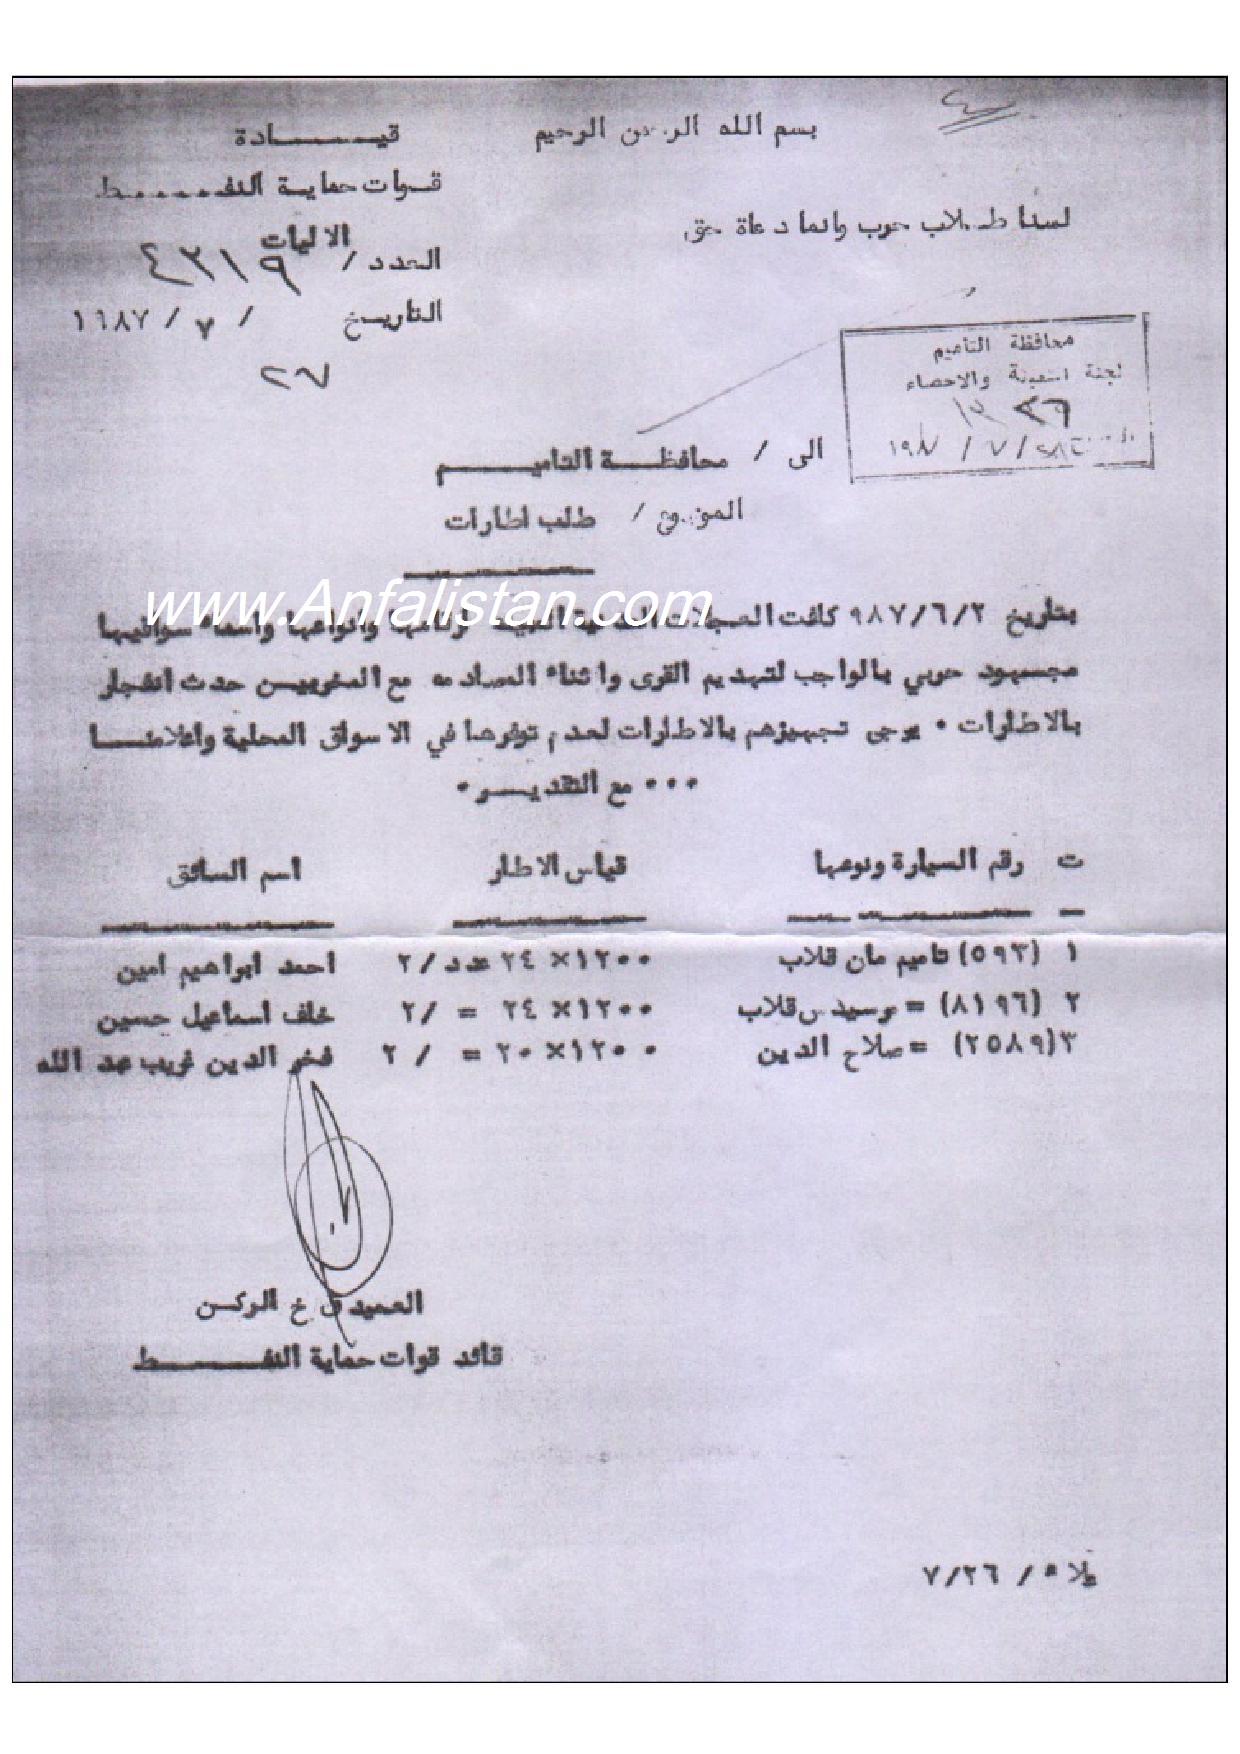 بسم الله الرحمن الرحيم
قيــــــادة
قوات حماية النفـــــط
الاليات
العدد / ٤٣١٩
التاريخ / ٧ / ١٦٨٧
٢٧
لسنا طلاب حرب وانما دعاة حق
محافظة التأميم
لجنة التعبئة والاحصاء
١٩٨٧ / ٧ /
الى / محافظــة التاميـــــم
الموضوع / طلب اطارات
www.Anfalistan.com
بتاريخ ٩٨٧/٦/٢ كلفت العجلات المدنية المبينة ارقامها وانواعها واسماء سواقيها
مجهود حربي بالواجب لتهديم القرى واثناء المصادمه مع المخربين حدث انفجار
بالاطارات • يرجى تجهيزهم بالاطارات لعدم توفرها في الاسواق المحلية واعلامنـــا
••• مع التقديـــر •
ت رقم السيارة ونوعها قياس الاطار اسم السائق
١ (٥٩٣) تاميم مان قلاب ١٢٠٠×٢٤ عدد/٢ احمد ابراهيم امين
٢ (٨١٩٦) = مرسيدس قلاب ١٢٠٠×٢٤ = /٢ خلف اسماعيل حسين
٣ (٢٥٨٩) = صلاح الدين ١٢٠٠×٢٠ = /٢ فخر الدين غريب عبد الله
العميد ق خ الركن
قائد قوات حماية النفـــــط
٧/٢٦ /